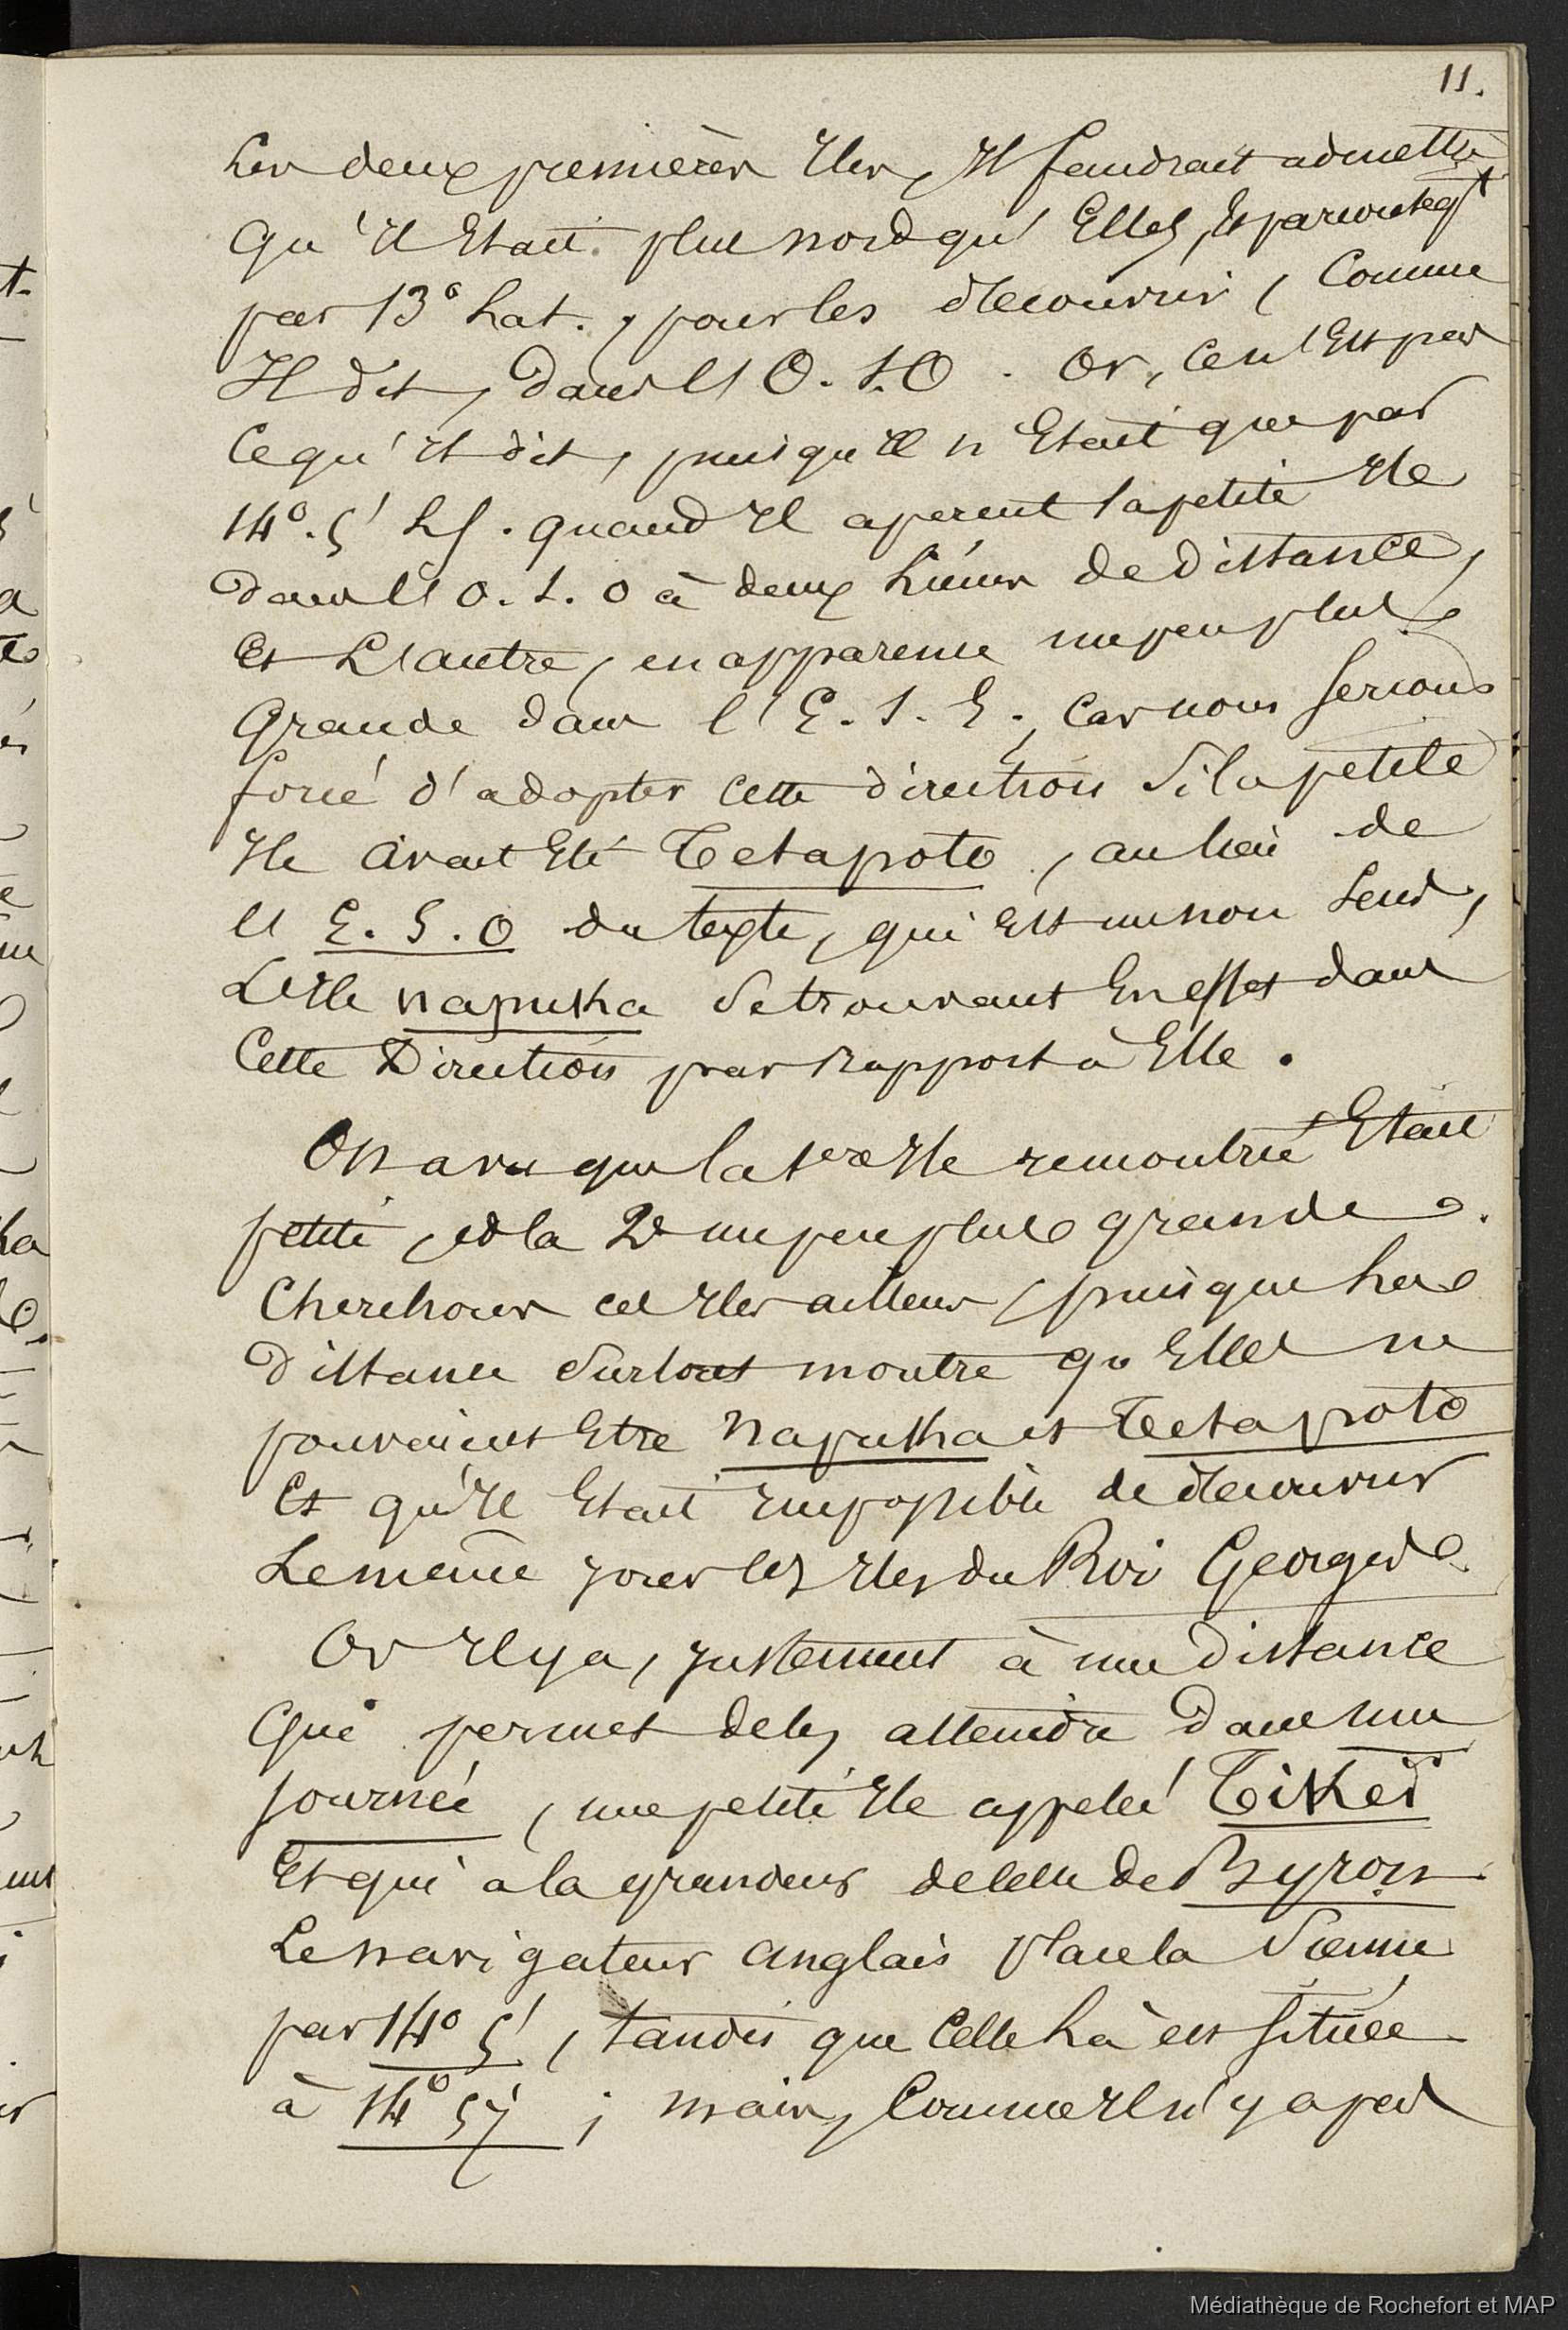 11.
Les deux premières Iles, Il faudrait admettre
qu'Il Etait plus nord qu'Elles, Et par conséqt
par 13° Lat., pour les découvrir, Comme
Il dit, dans l'O. S. O. Or, ce n'Est pas
Ce qu'Il dit, puisqu'Il n'Etait que par
14°. 5' LS. quand Il aperçut la petite Ile
dans l'O. S. O à deux Lieues de distance,
Et L'autre, en apparence un peu plus
Grande dans l'E. S. E., Car nous serions
forcé d'adopter cette direction Si la petite
Ile avait Eté Tetapoto, au lieu de
l'E. S. O du texte, qui Est un non Sens,
L'Ile napuka Se trouvant En effet dans
Cette Direction par Rapport à Elle.
On a vu que la 1ere Ile rencontrée Etait
petite, et la 2e un peu plus grande.
Cherchons ces Iles ailleurs, puisque La
distance Surtout montre qu'Elles ne
pouvaient Etre Napuka et Tetapoto
Et qu'Il Etait Impossible de découvrir
Le même jour les Iles du Roi Georges.
Or Il y a, Justement à une distance
Qui permet de les atteindre dans une
Journée, une petite Ile appelée Tikei
Et qui a la grandeur de celle de Byron
Le navigateur anglais place la Sienne
par 14° 5', tandis que Celle Là est située
à 14° 57' ; mais, Comme Il n'y a pas
Médiathèque de Rochefort et MAP